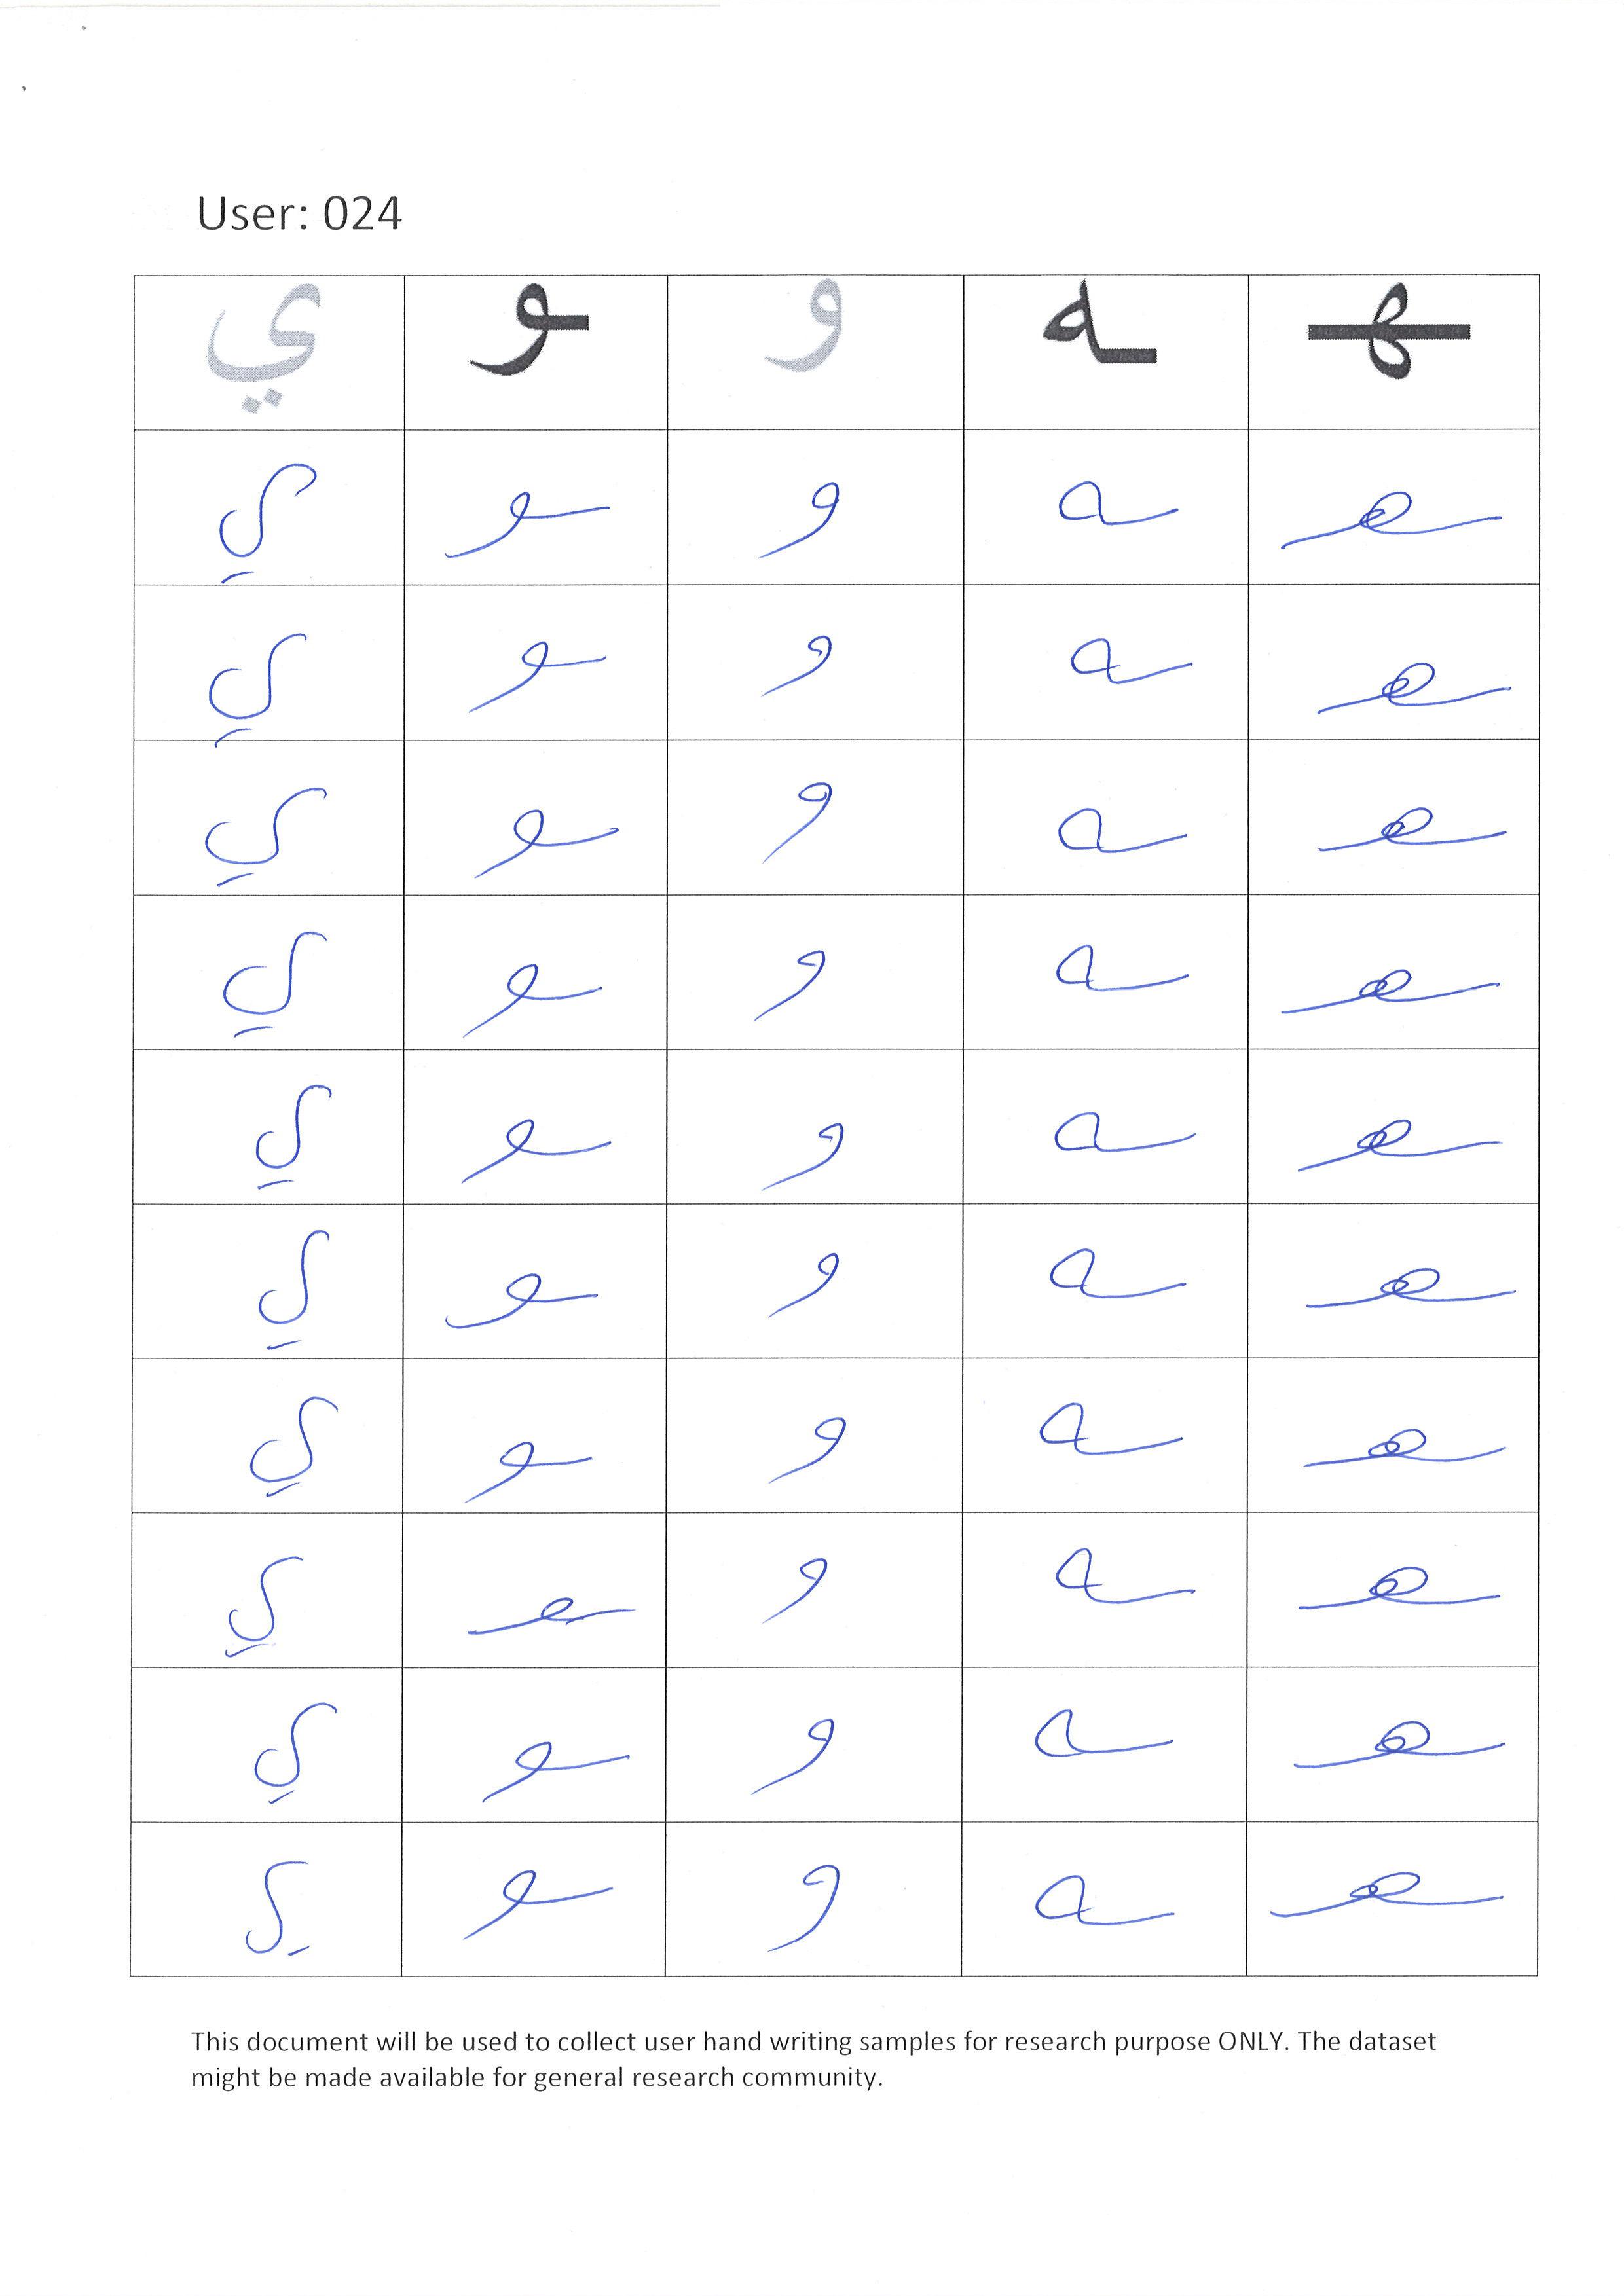 User: 024
ي ـو و ـه ـهـ
ي ـو و ـه ـهـ
ي ـو و ـه ـهـ
ي ـو و ـه ـهـ
ي ـو و ـه ـهـ
ي ـو و ـه ـهـ
ي ـو و ـه ـهـ
ي ـو و ـه ـهـ
ي ـو و ـه ـهـ
ي ـو و ـه ـهـ
ي ـو و ـه ـهـ
This document will be used to collect user hand writing samples for research purpose ONLY. The dataset
might be made available for general research community.